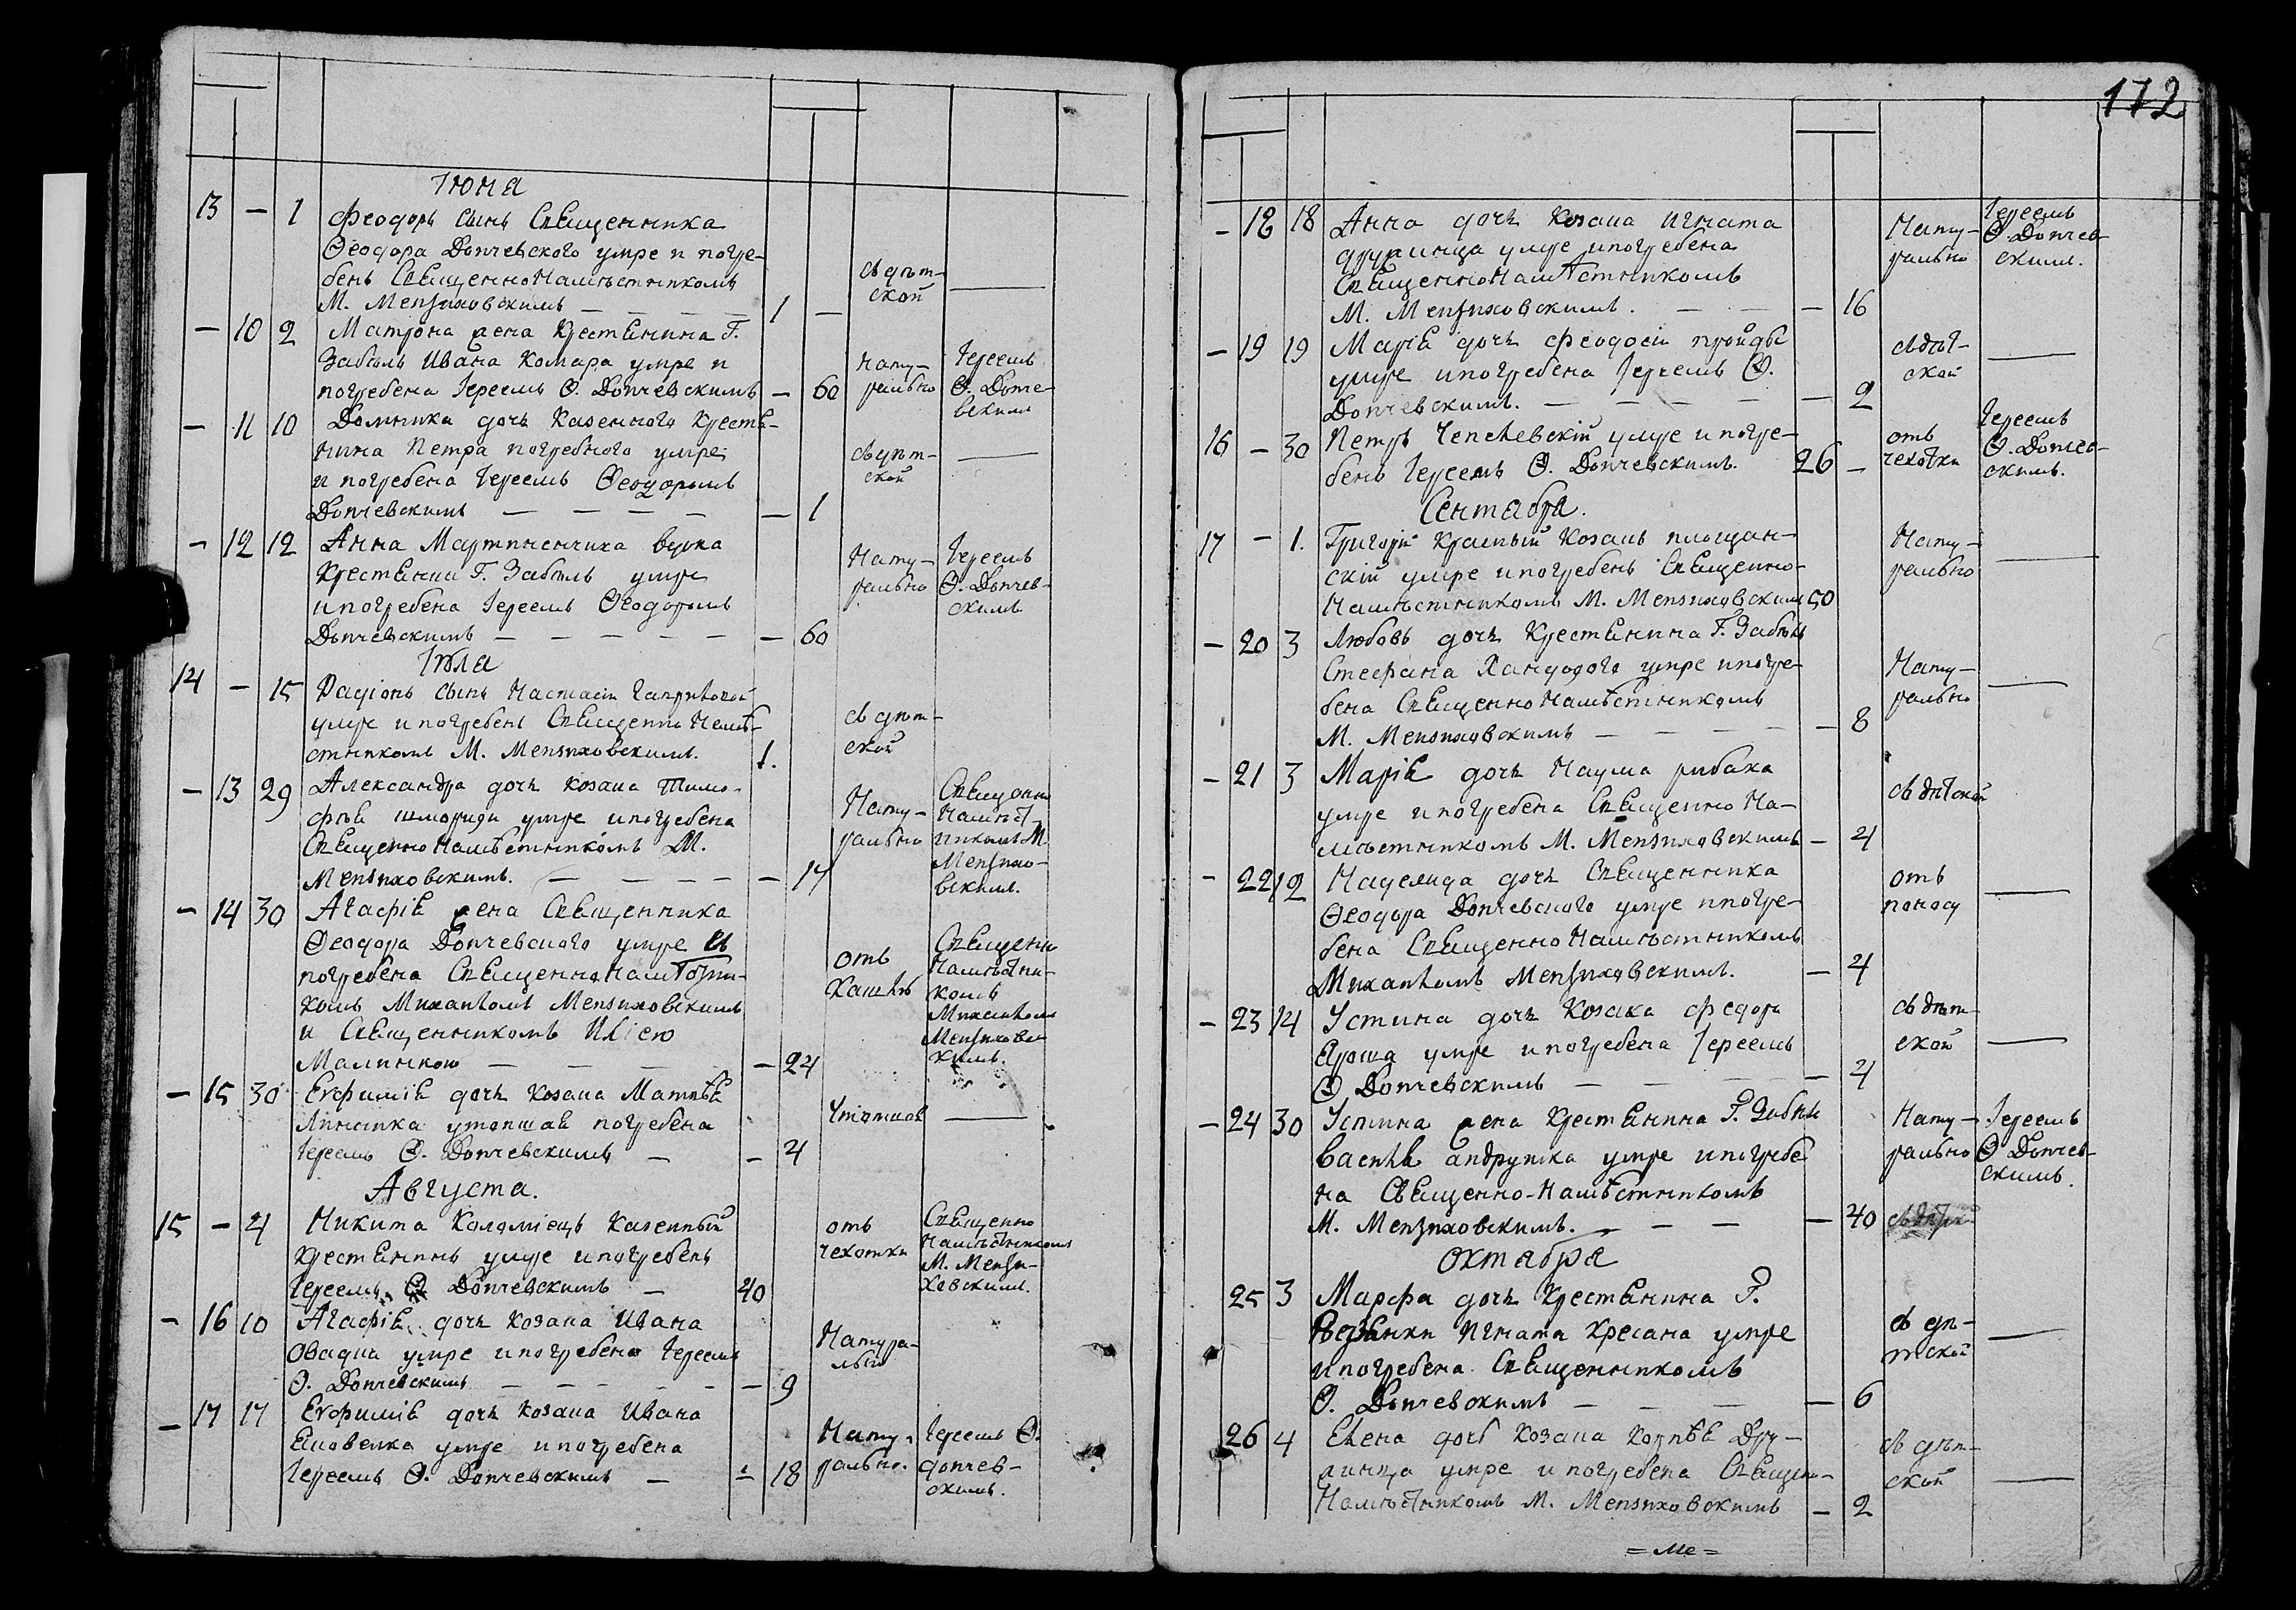 172
Іюня
13 — 1 Феодоръ сынъ Священника
Ѳеодора Допчевского умре и погре-
бенъ СвященноНамѣстникомъ
М. Мензиховскимъ — — — — 1 —
съ дѣт-
ской ——
— 10 2 Матрона жена Крестянина Г.
Забѣлъ Ивана Комара умре и
погребена Іереемъ Ѳ. Допчевскимъ — 60
нату-
рально
Іереемъ
Ѳ. Допче-
вскимъ
— 11 10 Домника дочь Казенного Крестя-
нина Петра погребного умре
и погребена Іереемъ Ѳеодоромъ
Допчевскимъ — — — — — 1
съ дѣт-
ской ——
— 12 12 Анна Мартиненчиха вдова
Крестянки Г. Забѣлъ умре
и погребена Іереемъ Ѳеодоромъ
Допчевскимъ — — — — — — 60
Нату-
рально
Іереемъ
Ѳ. Допчев-
скимъ
Іюля
14 — 15 Радіонъ сынъ Настасіи
умре и погребенъ СвященноНамѣ-
стникомъ М. Мензиховскимъ. 1.
съ дѣт-
ской
— 13 29 Александра дочь козака Тимо-
фѣя умре и погребена
СвященноНамѣстникомъ М.
Мензиховскимъ. — — — — — 17
Нату-
рально
Священно
Намѣст-
никомъ М
Мензихо-
вскимъ.
— 14 30 Агафія жена Священника
Ѳеодора Допчевского умре и
погребена СвященноНамѣстни-
комъ Михаиломъ Мензиховскимъ
и Священникомъ Иліею
Малинкою — — — — 24
отъ
Кашлѣ
Священно
Намѣстни-
комъ
Михаиломъ
Мензиховс-
кимъ.
— 15 30 Евфимія дочь козака Матвѣя
Линника утопшая погребена
Іереемъ Ѳ. Допчевскимъ — — 4
Утопшая ——
Августа.
15 — 4 Никита Коломіецъ Казенный
Крестянинъ умре и погребенъ
Іереемъ Ѳ Допчевскимъ — 40
отъ
чехотки
Священно
Намѣстникомъ
М. Мензи-
ховскимъ.
— 16 10 Агафія дочь козака Ивана
Овадна умре и погребена Іереемъ
Ѳ. Допчевскимъ — — — — — — 9
Натура-
льно
— 17 17 Евфимія дочь козака Ивана
умре и погребена
Іереемъ Ѳ. Допчевскимъ — — 18
Нату-
рально.
Іереемъ Ѳ.
допчев-
скимъ.
— 18 18 Анна дочь козака Игната
дружинца умре и погребена
СвященноНамѣстникомъ
М. Мензиховскимъ. — — — 16
Нату-
рально
Іереемъ
Ѳ. Допчев-
скимъ.
— 19 19 Марія дочь Феодосіи пройды
умре и погребена Іереемъ Ѳ.
Допчевскимъ. — — — — — 2
съ дѣт-
ской ——
16 — 30 Петръ Чепелевскій умре и погре-
бенъ Іереемъ Ѳ. Допчевскимъ. 26 —
отъ
чехотки
Іереемъ
Ѳ. Допчев-
скимъ.
Сентабра.
17 — 1. Григорій Красный Козакъ площан-
скій умре и погребенъ Священно-
Намѣстникомъ М. Мензиховскимъ 50
Нату-
рально ——
— 20 3 Любовь дочь Крестянина Г. Забѣлъ
Стефана Хандодого умре и погре-
бена СвященноНамѣстникомъ
М. Мензиховскимъ — — — — — 8
Нату-
рально ——
— 21 3 Марія дочь Наума рибака
умре и погребена Священно На-
мѣстникомъ М. Мензиховскимъ — 4
съ дѣтской
— 22 12 Надежда дочь Священника
Ѳеодора Допчевского умре и погре-
бена СвященноНамѣстникомъ
Михаиломъ Мензиховскимъ. — 4
отъ
поносу ——
— 23 14 Устина дочь Козака Федора
Яроша умре и погребена Іереемъ
Ѳ Допчевскимъ — — — — 4
съ дѣт-
ской ——
— 24 30 Устина жена Крестянина Г. Забѣлъ
Василя андрушка умре и погребе
на Священно-Намѣстникомъ
М. Мензиховскимъ. — — — — 40
Нату-
рально
Іереемъ
Ѳ Допчев-
скимъ.
Октабра
25 3 Марфа дочь Крестянина Г.
Игната Кресана умре
и погребена Священникомъ
Ѳ. Допчевскимъ — — — — 6
съ дѣ-
тской ——
26 4 Елена дочь козака корнѣя Дру-
жинца умре и погребена Священно-
Намѣстникомъ М. Мензиховскимъ — 2
съ дѣт-
ской ——
= Ме =